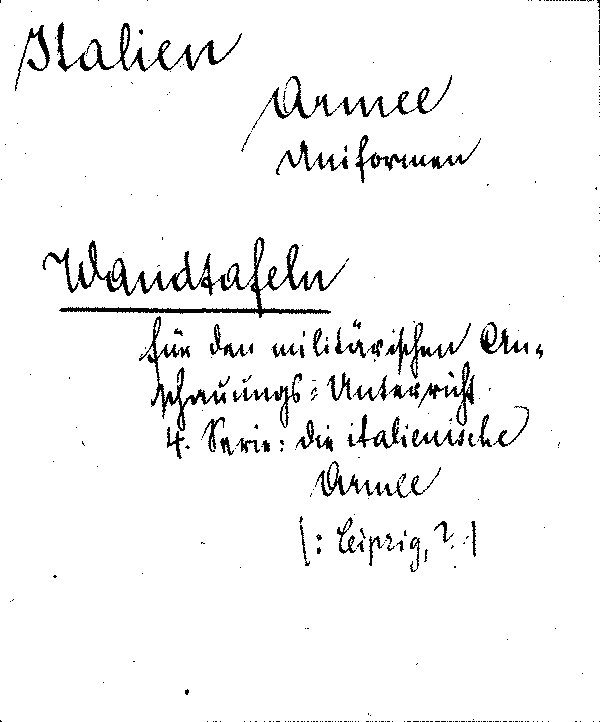 Italien
Armee
Uniformen
Wandtafeln
für den militärischen An-
schauungs-Unterricht.
4. Serie: die italienische
Armee
(: Leipzig, ? )